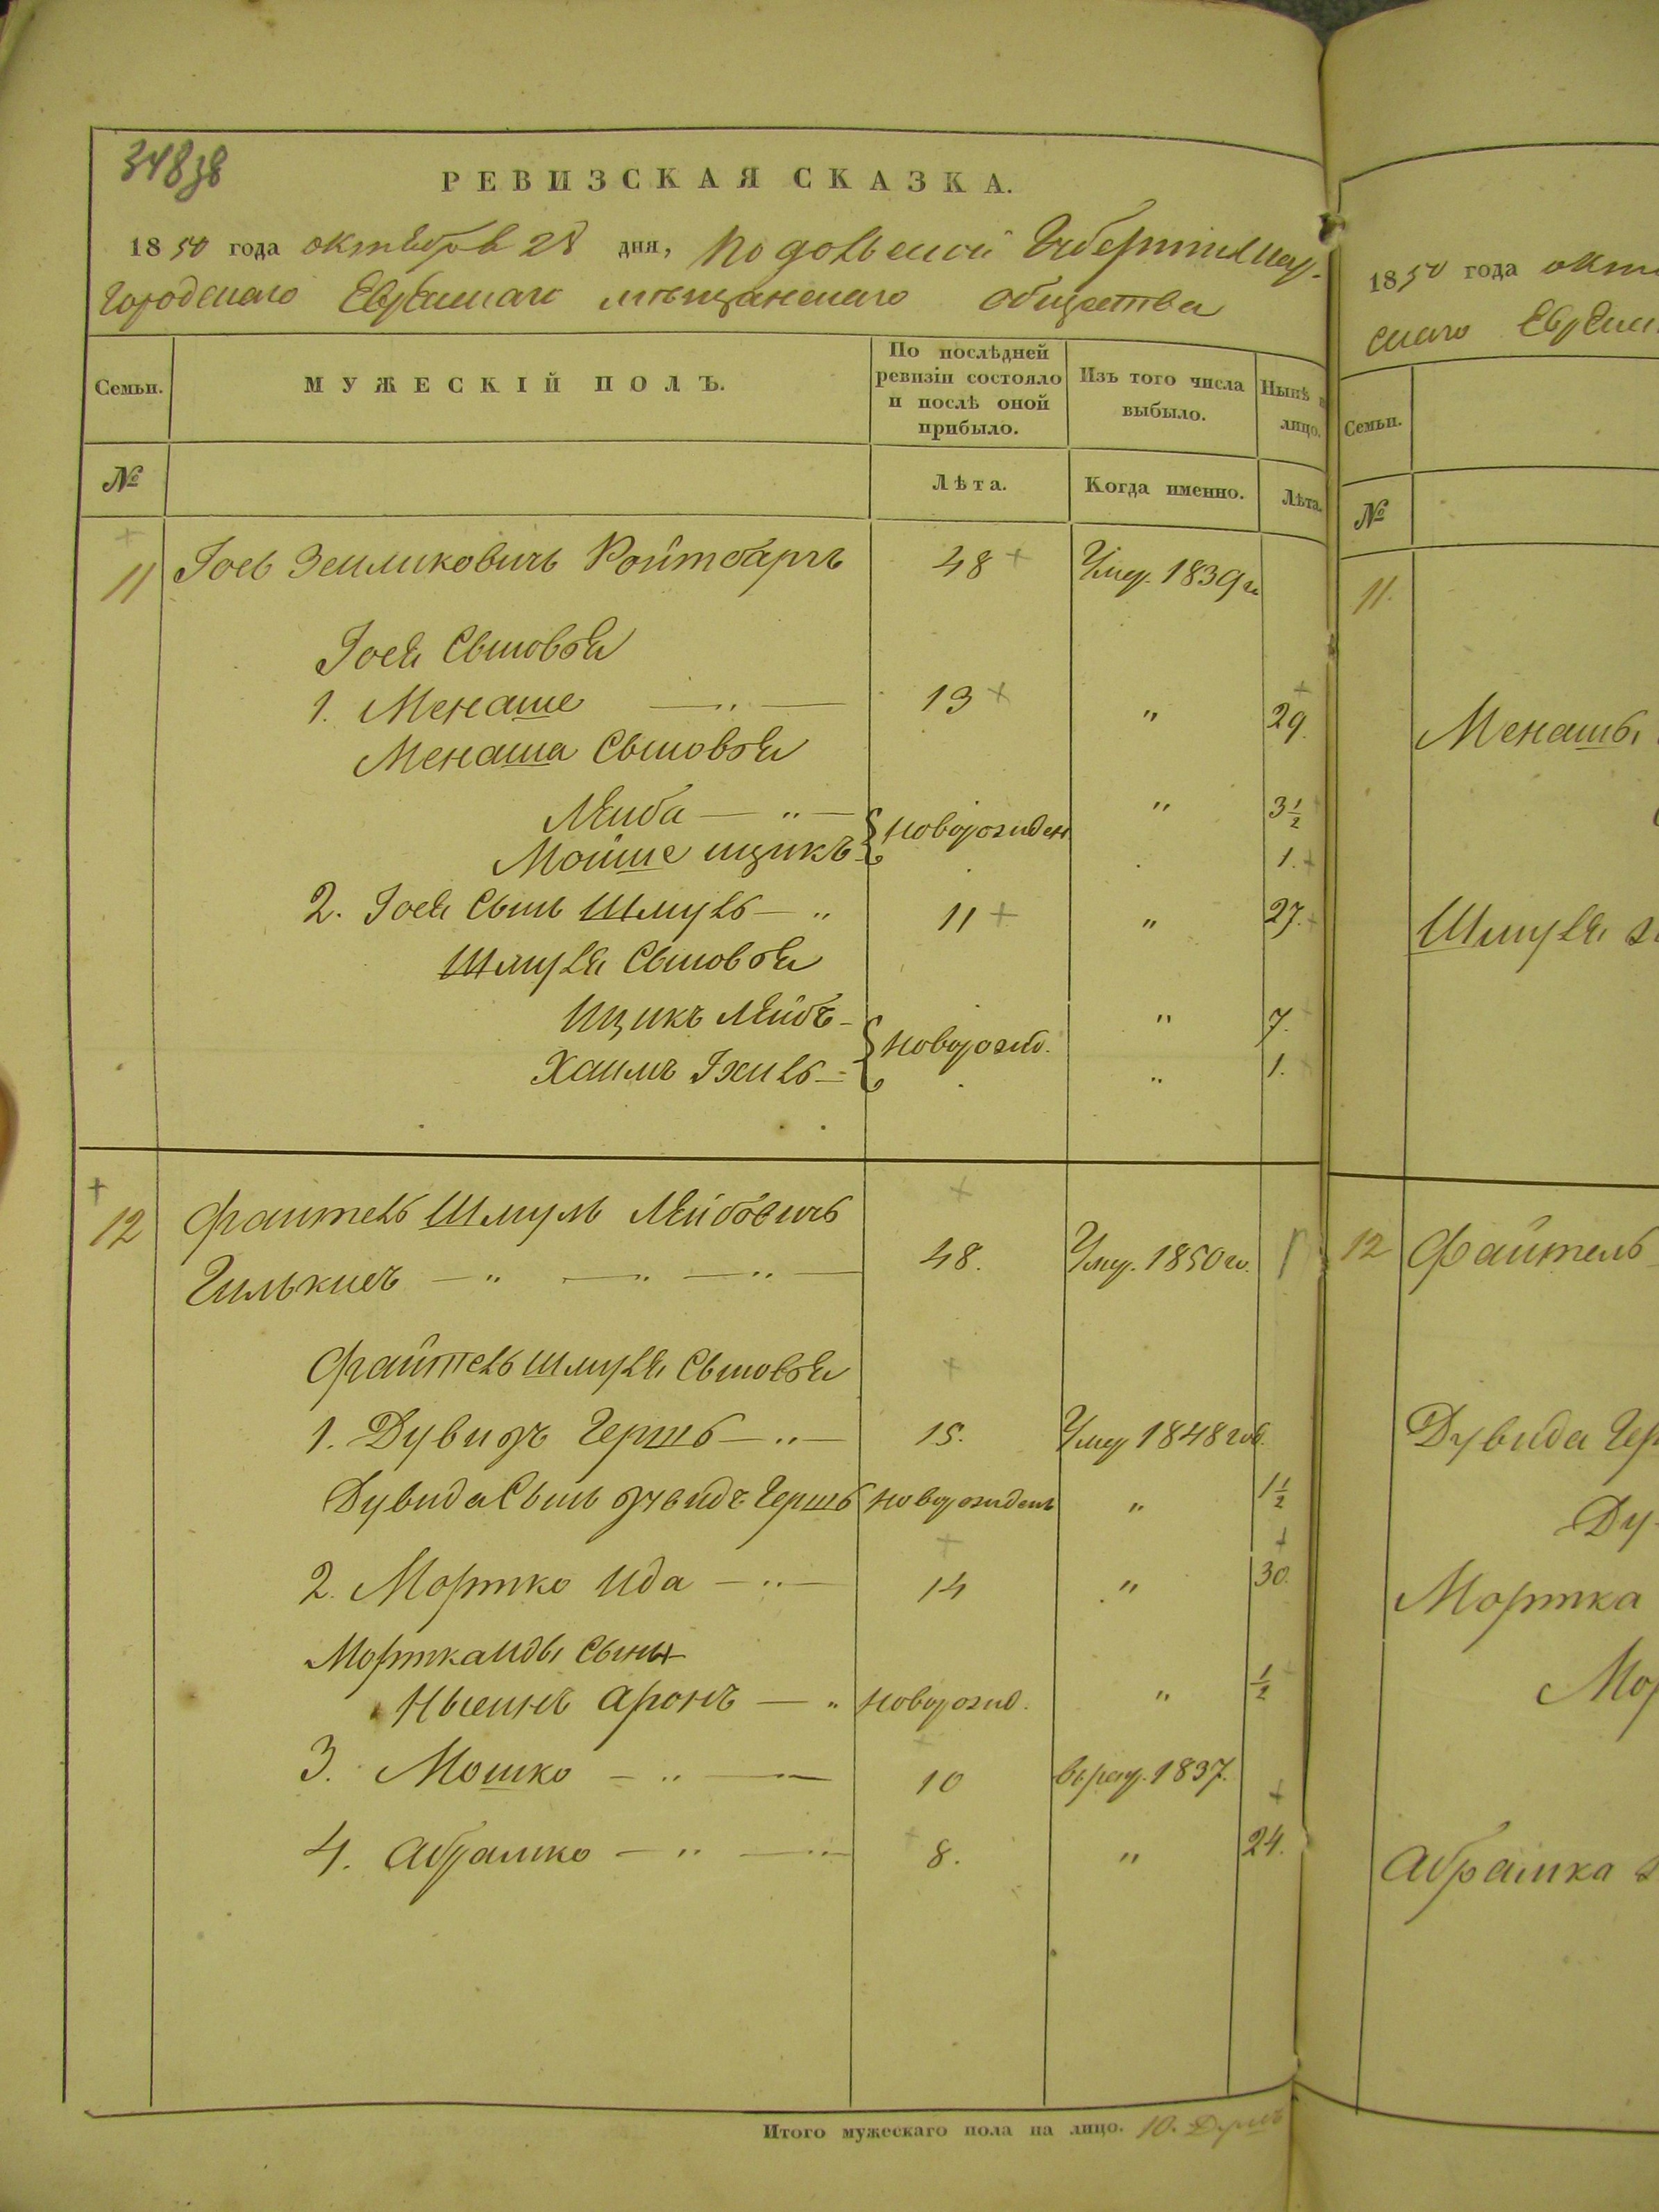 РЕВИЗСКАЯ СКАЗКА.
1850 года октября 28 дня, Подольской Губернии
городскаго Еврейскаго мѣщанскаго общества
Семьи.
МУЖЕСКІЙ ПОЛЪ.
По послѣдней ревизіи состояло и послѣ оной прибыло.
Изъ того числа выбыло.
Нынѣ
лицо.
№
Лѣта.
Когда именно.
Лѣта.
11 Іось Зейликовичъ Ройтбаргъ 48 Умер. 1839 г.
Іося Сыновья
1. Менаше 13 " 29.
Менаша Сыновья
Лейба " 3½
Мойше ицикъ новорожден 1.
2. Іося Сынъ Шмуль 11 " 27.
Шмуля Сыновья
Ицикъ Лейбъ " 7.
Хаимъ Іхиль новорожд. " 1.
12 Файтель Шмуль Лейбовичъ
48. Умер. 1850 го.
Файтель Шмуля Сыновья
1. Дувидъ Гершъ 15. Умер 1848 год.
Дувида Сынъ дувидъ Гершъ новорожденъ " 1½
2. Мортко Ида 14 " 30.
Мортка Иды Сынъ
Нысинъ Аронъ новорожд. " ½
3. Мошко 10 1837.
4. Абрамко 8. " 24.
Итого мужескаго пола на лицо. 10. Душъ
1850 года
скаго
Семьи.
№
11.
Менашы
Шмуля
12 Файтель
Дувида
Мортка
Абрамка